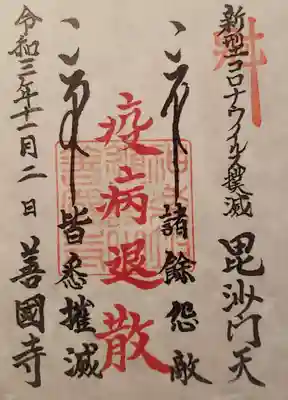 新型コロナウイルス撲滅
毘沙門天
諸餘怨敵
疫病退散
皆悉摧滅
令和三年十一月二日
善國寺